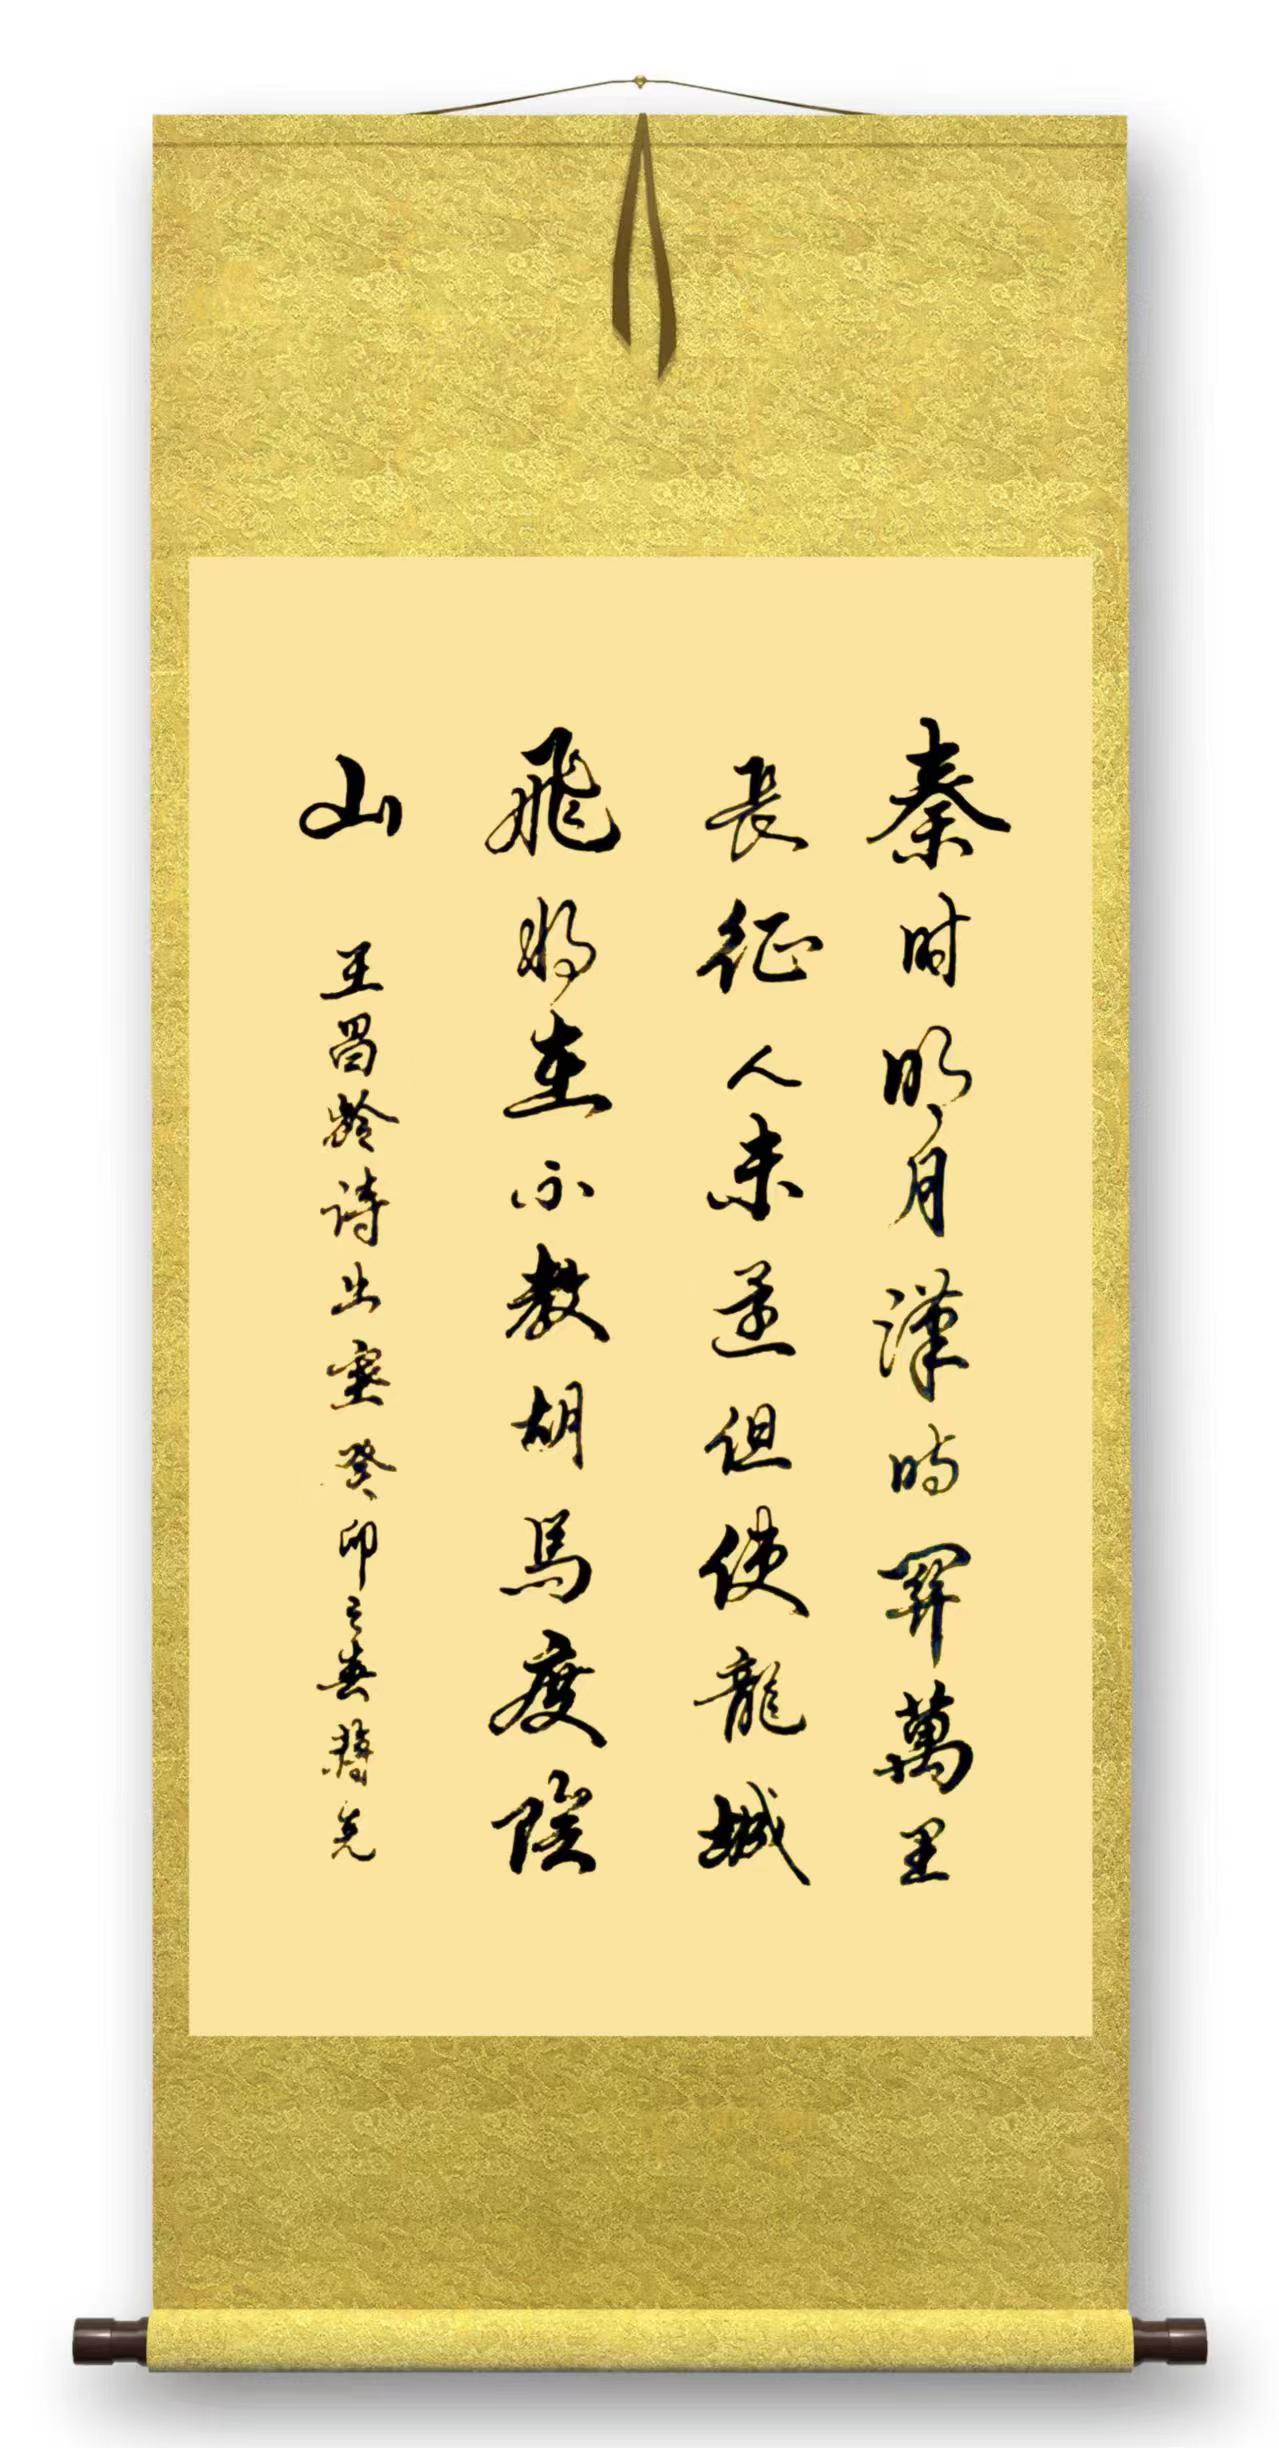 秦时明月漢時關萬里
長征人未還但使龍城
飛将在不教胡馬度陰
山 王昌龄诗出塞癸卯之春